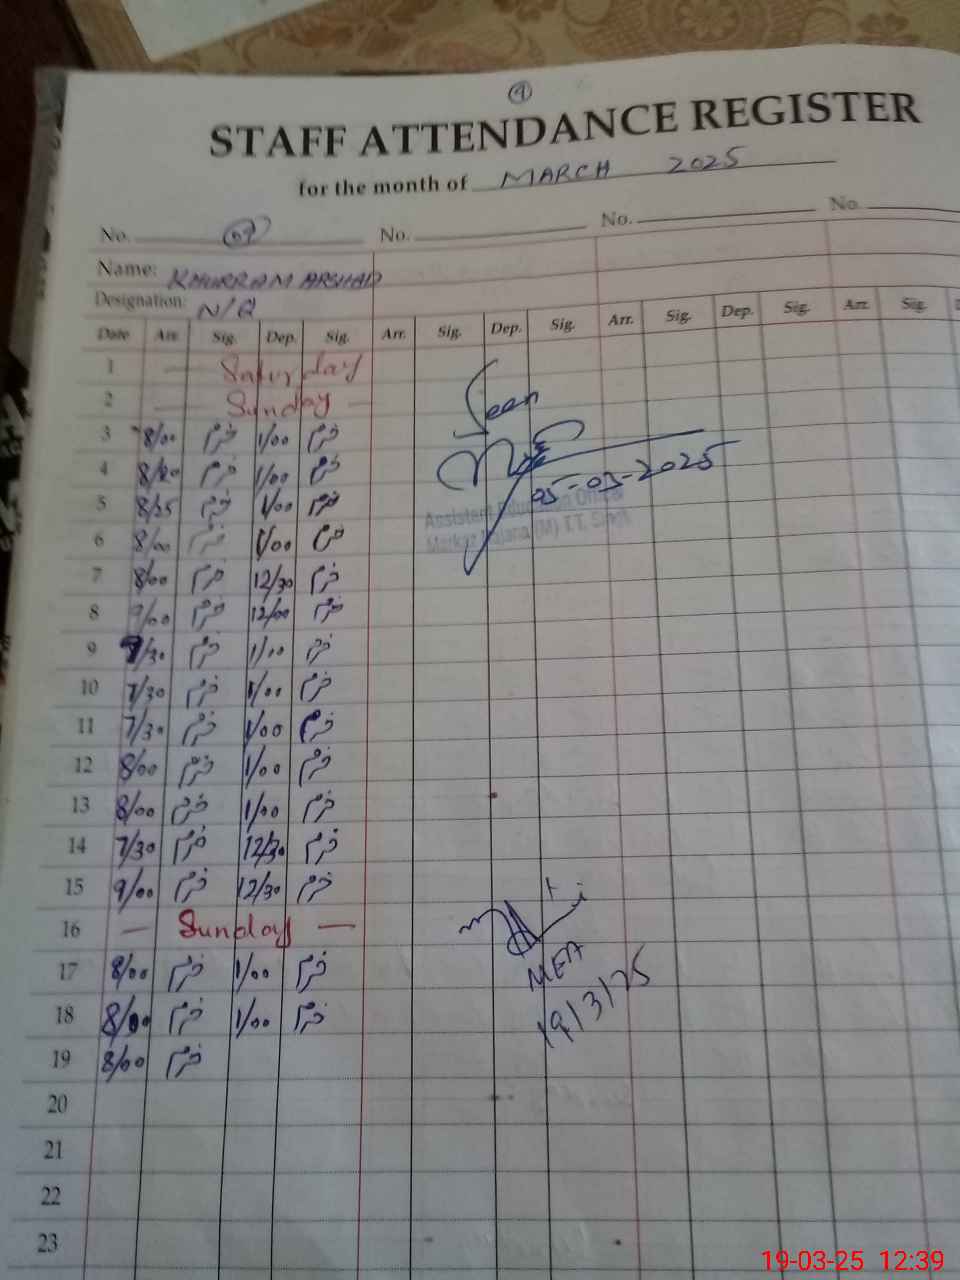 9
STAFF ATTENDANCE REGISTER
for the month of MARCH 2025
No. No. No. No.
Name: KHURRAM ARSHAD
Designation: N/Q
Date Arr. Sig. Dep. Sig. Arr. Sig. Dep. Sig. Arr. Sig. Dep. Sig. Arr. Sig.
1 — Saturday
2 — Sunday — Seen
3 8/00 خرم 1/00 خرم
4 8/20 خرم 1/00 خرم 05-03-2025
5 8/25 خرم 1/00 خرم Assistant Education Officer
6 8/00 خرم 1/00 خرم Markaz (M) T.T. Singh
7 8/00 خرم 12/30 خرم
8 9/00 خرم 12/00 خرم
9 7/30 خرم 1/00 خرم
10 7/30 خرم 1/00 خرم
11 7/30 خرم 1/00 خرم
12 8/00 خرم 1/00 خرم
13 8/00 خرم 1/00 خرم
14 7/30 خرم 12/30 خرم
15 9/00 خرم 12/30 خرم
16 — Sunday —
17 8/00 خرم 1/00 خرم MEA
18 8/00 خرم 1/00 خرم 19/3/25
19 8/00 خرم
20
21
22
23
19-03-25 12:39